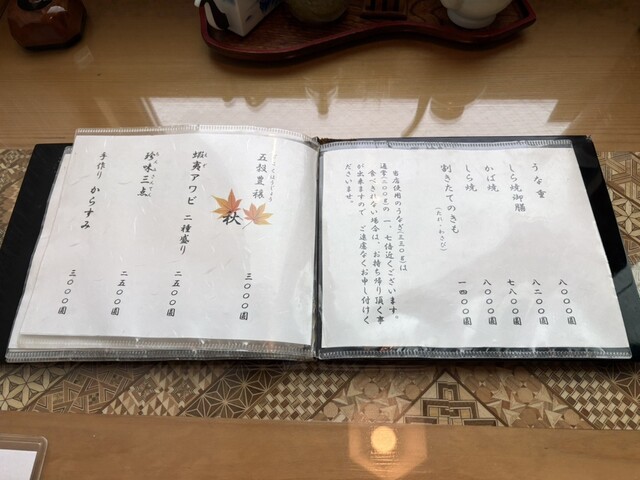 うな重　八〇〇〇圓
しら焼御膳　八二〇〇圓
かば焼　七八〇〇圓
しら焼　八〇〇〇圓
割きたてのきも　一四〇〇圓
(たれ・わさび)
当店使用のうなぎ(三三〇g)は
通常(二〇〇g)の一、七倍近くございます。
食べきれない場合は、お持ち帰り頂く事
が出来ますので、ご遠慮なくお申し付けく
ださいませ。
五穀豊穣　三〇〇〇圓
秋
蝦夷アワビ 二種盛り　二五〇〇圓
珍味三点　二五〇〇圓
手作り からすみ　三〇〇〇圓